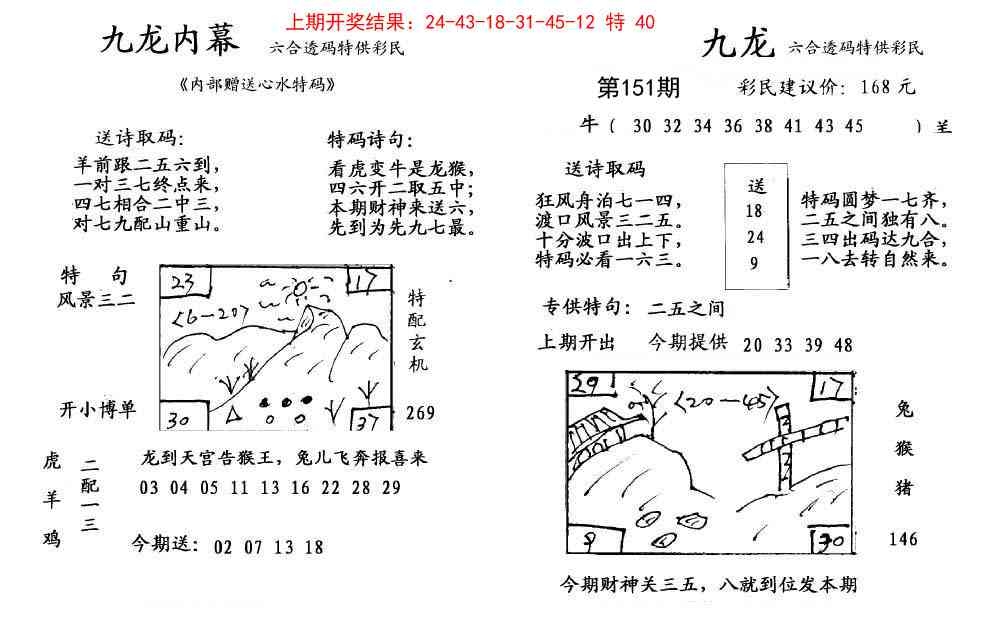 上期开奖结果：24-43-18-31-45-12 特 40
九龙内幕 六合透码特供彩民
《内部赠送心水特码》
送诗取码：
羊前跟二五六到，
一对三七终点来，
四七相合二中三，
对七九配山重山。
特码诗句：
看虎变牛是龙猴，
四六开二取五中；
本期财神来送六，
先到为先九七最。
特 句
风景三二
开小博单
23
17
<6-20>
30
37
特配玄机
269
虎羊鸡
二配一三
龙到天宫告猴王，兔儿飞奔报喜来
03 04 05 11 13 16 22 28 29
今期送：02 07 13 18
九龙 六合透码特供彩民
第151期 彩民建议价：168元
牛（ 30 32 34 36 38 41 43 45 ）羊
送诗取码
狂风舟泊七一四，
渡口风景三二五。
十分波口出上下，
特码必看一六三。
送
18
24
9
特码圆梦一七齐，
二五之间独有八。
三四出码达九合，
一八去转自然来。
专供特句：二五之间
上期开出 今期提供 20 33 39 48
29
17
<20-45>
9
30
兔
猴
猪
146
今期财神关三五，八就到位发本期